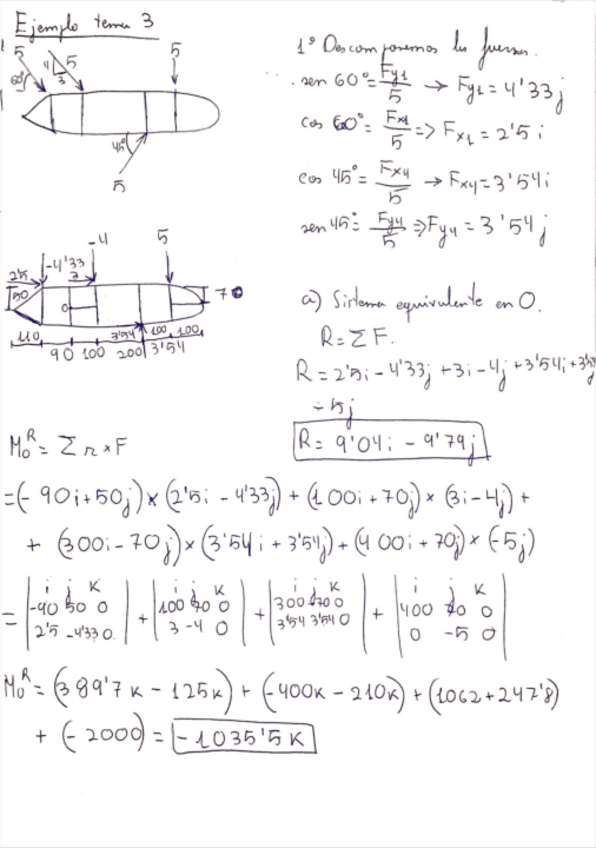 Ejemplo tema 3
5
5
5
60°
4
3
45°
5
1º Descomponemos las fuerzas.
sen 60° = Fy1/5 → Fy1 = 4'33 j
cos 60° = Fx1/5 => Fx1 = 2'5 i
cos 45° = Fx4/5 → Fx4 = 3'54 i
sen 45° = Fy4/5 => Fy4 = 3'54 j
-4
5
2'5
-4'33
3
50
0
70
110
90
100
3'54
200
3'54
100
100
a) Sistema equivalente en O.
R = Σ F.
R = 2'5i - 4'33j + 3i - 4j + 3'54i + 3'54j
- 5j
R = 9'04i - 9'79j
M₀ᴿ = Σ r × F
= (-90i + 50j) × (2'5i - 4'33j) + (100i + 70j) × (3i - 4j) +
+ (300i - 70j) × (3'54i + 3'54j) + (400i + 70j) × (-5j)
= | i j K | + | i j K | + | i j K | + | i j K |
-90 50 0 100 70 0 300 -70 0 400 70 0
2'5 -4'33 0 3 -4 0 3'54 3'54 0 0 -5 0
M₀ᴿ = (389'7K - 125K) + (-400K - 210K) + (1062 + 247'8)
+ (-2000) = -1035'5K